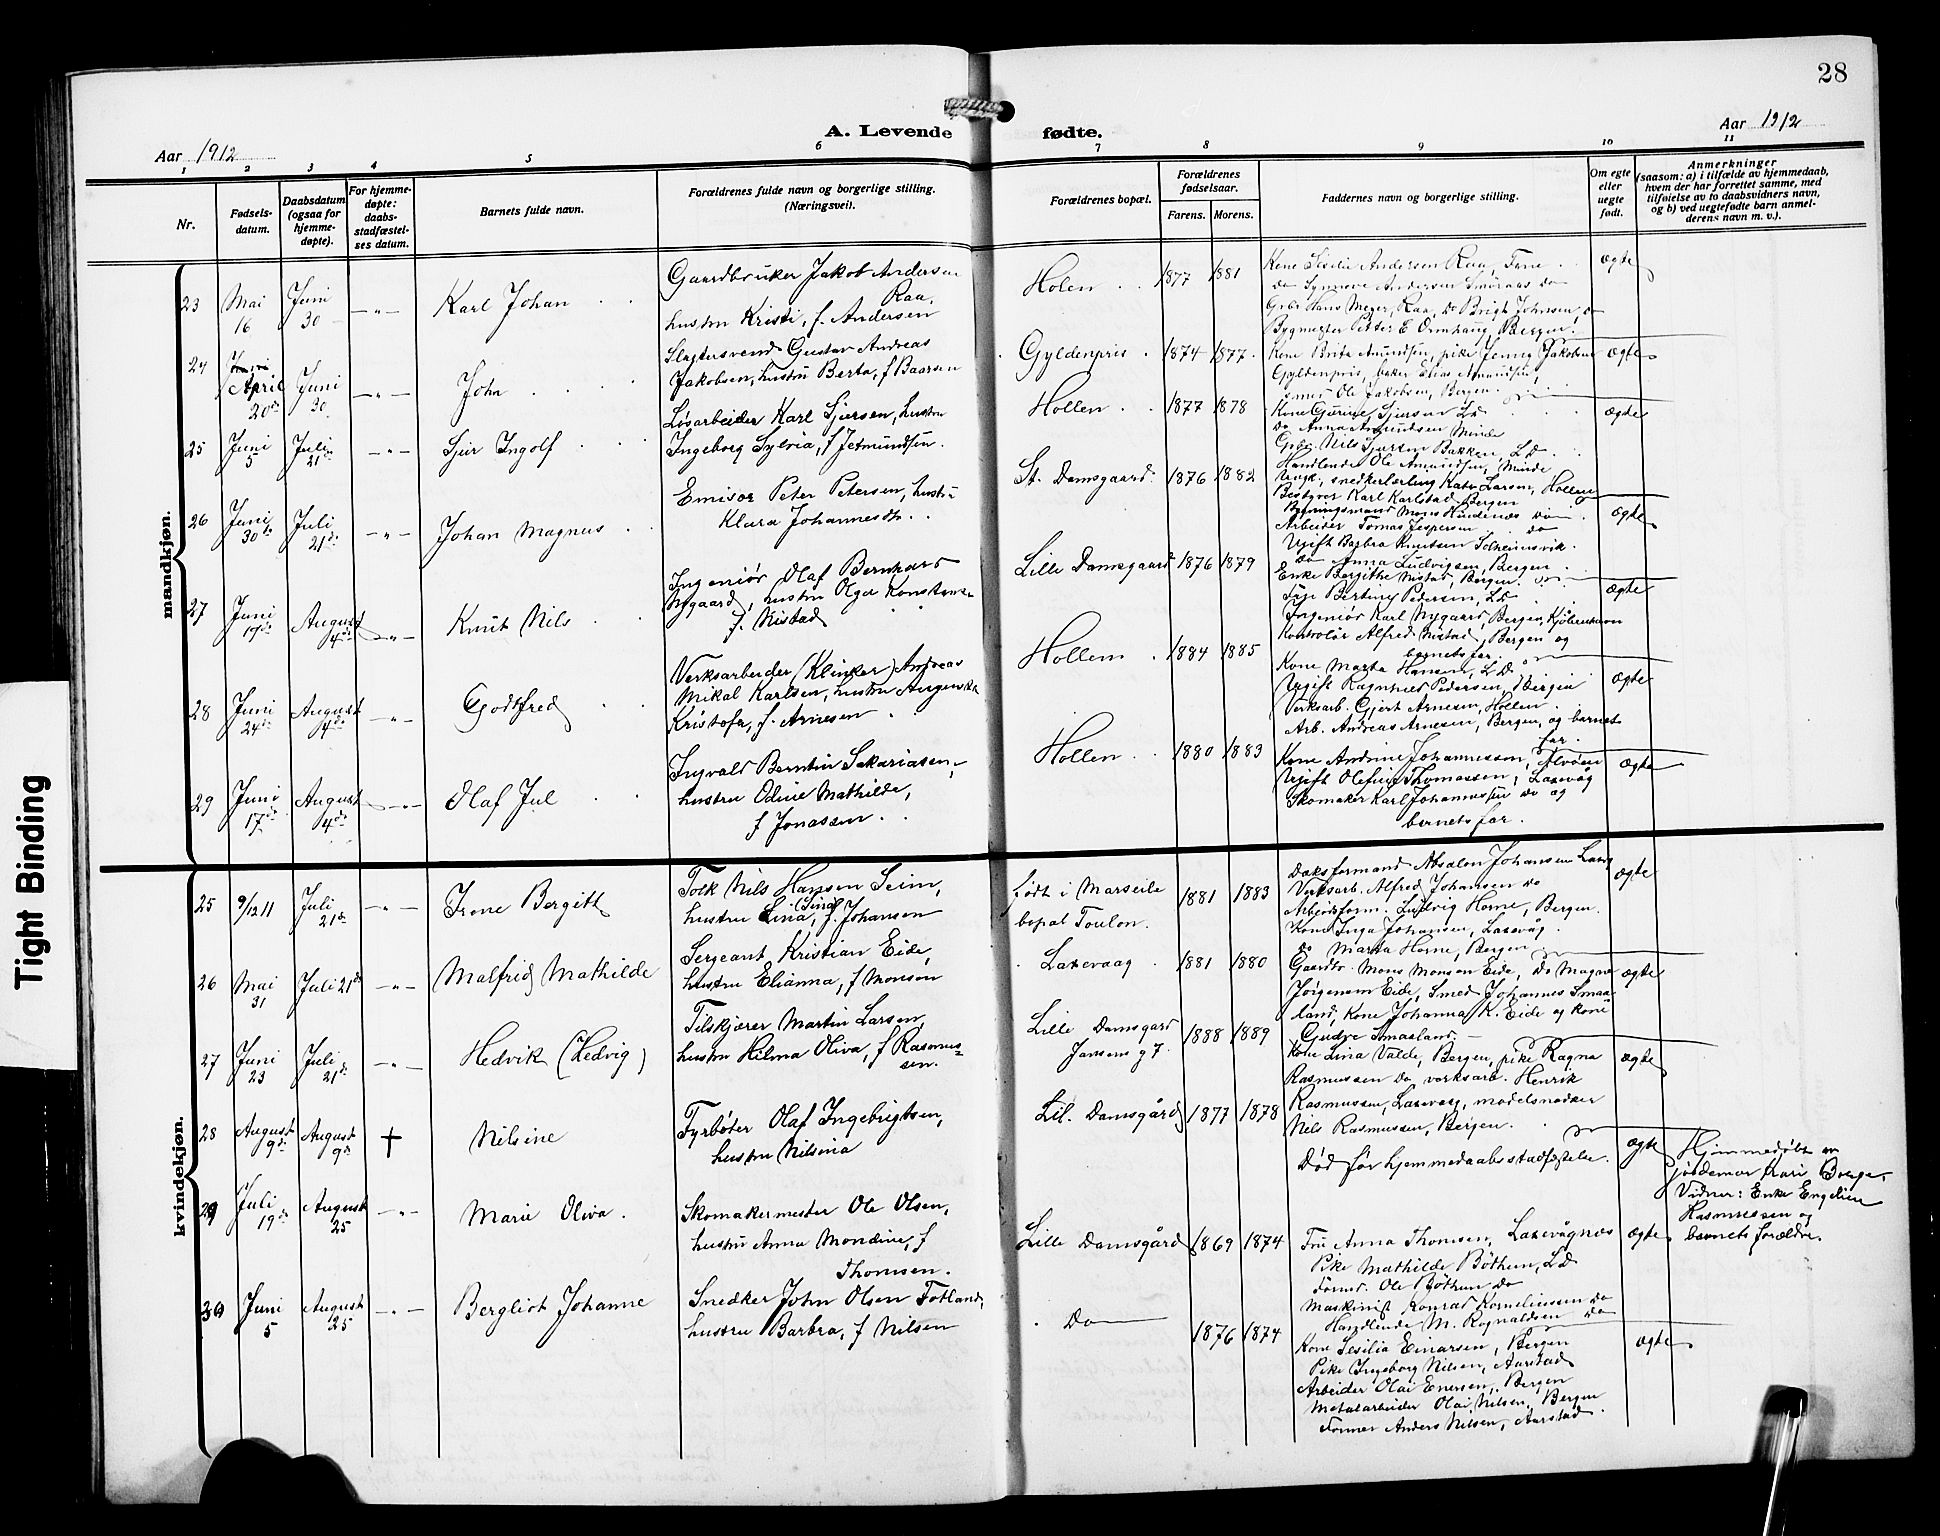 28
A. Levende fødte.
Aar 1912
Aar 1912
1 2 3 4 5 6 7 8 9 10 11
Nr.
Fødsels-
datum.
Daabsdatum
(ogsaa for
hjemme-
døpte).
For hjemme-
døpte:
daabs-
stadfæstel-
ses datum.
Barnets fulde navn.
Forældrenes fulde navn og borgerlige stilling.
(Næringsvei).
Forældrenes bopæl.
Forældrenes
fødselsaar.
Farens. Morens.
Faddernes navn og borgerlige stilling.
Om egte
eller
uegte
født.
Anmerkninger
(saasom: a) i tilfælde av hjemmedaab,
hvem der har forrettet samme, med
tilføielse av to daabsvidners navn,
og b) ved uegtefødte barn anmel-
derens navn m. v.).
mandkjøn.
23 Mai 16 Juni 30 -"- Karl Johan
Gaardbruker Jakob Andersen
Raa,
hustru Kristi, f. Andersen
Holen 1877 1881
Kone Sesilie Andersen Raa, Fane
do Synneve Andersen Smøraas do
Gbr. Hans Meyer, Raa, Do Brigt Johnsen do
Bygmester Petter E Ormhaug, Bergen.
ægte
24 April 20de Juni 30 -"- John
Slagtersvend Gustav Andreas
Jakobsen, hustru Berta, f Baarsen
Gyldenpris 1874 1877
Kone Brita Amundsen, pike Jenny Jakobsen
Gyldenpris, baker Elias Amundsen,
smed Ole Jakobsen, Bergen.
ægte
25 Juni 5 Juli 21 -"- Sjur Ingolf
Løsarbeider Karl Sjursen, hustru
Ingeborg Sylvia, f Jetmundsen.
Hollen 1877 1878
Kone Gurine Sjursen LD
Do Anna Amundsen Minde
Gbr. Nils Sjursen Bakken, LD.
Handlende Ole Amundsen, Minde
Ungk., snedkerlærling Kato Larsen, Hollen
ægte
26 Juni 30te Juli 21de -"- Johan Magnus
Emisær Peter Petersen, hustru
Klara Johannesdtr.
St. Damsgaard 1876 1882
Bestyrer Karl Karlstad Bergen
Bygningsmand Mons Hindenes do
Arbeider Tomas Jespersen do
Ugift Barbra Knutsen Solheimsvik.
Do Anna Ludvigsen, Bergen
ægte
27 Juni 17de August 4de -"- Knut Nils
Ingeniør Olaf Bernhard
Nygaard, hustru Olga Konstanse
f. Nistad
Lille Damsgaard 1876 1879
Enke Bergithe Nistad, Bergen.
Frk. Bertine Pedersen, LD
Ingeniør Karl Nygaard, Bergen, Kjøbenhavn
Kontrolør Alfred Nistad, Bergen og
barnets far.
ægte
28 Juni 24de August 4de -"- Godtfred
Verksarbeider (Klinker) Andreas
Mikal Karlsen, hustru
Kristofa, f. Arnesen
Hollen 1884 1885
Kone Marta Hansen, LD
Ugift Ragnhild Pedersen, Bergen
Verksarb. Gjert Arnesen, Hollen
Arb. Andreas Arnesen, Bergen, og barnets
far.
ægte
29 Juni 17de August 4de -"- Olaf Jul
Ingvald Berntin Sakariasen,
hustru Odine Mathilde,
f Jonassen.
Hollen 1880 1883
Kone Andrine Johannessen, Alvøen
Ugift Olefine Thomassen, Laxevåg
Skomaker Karl Johannessen do og
barnets far.
ægte
kvindekjøn.
25 9/12 11 Juli 21de -"- Irene Bergitt
Tolk Nils Hansen Seim,
hustru Lina, (Sina) f. Johansen
født i Marseile
bopæl Toulon.
1881 1883
Daksformand Absalon Johansen Laxv
Verksarb. Alfred Johansen do
Arbeidsform. Ludvig Horne, Bergen.
Kone Inga Johansen, Laxevåg.
Do Marta Horne, Bergen
ægte
26 Mai 31 Juli 21de -"- Malfrid Mathilde
Sergeant Kristian Eide,
hustru Elianna, f Monsen
Laxevaag 1881 1880
Gaardbr. Mons Monsen Eide, Do Magne
Jörgensen Eide, Smed Johannes Smaa-
land, Kone Johanna K. Eide og kone
Gudve Smaaland.
ægte
27 Juni 23 Juli 21de -"- Hedvik (Hedvig)
Tilskjærer Martin Larsen,
hustru Hilma Oliva, f Rasmus-
sen.
Lille Damsgård
Jansens g 7.
1888 1889
Kone Lina Valde, Bergen, pike Ragna
Rasmussen do verksarb. Henrik
Rasmussen, Laxevaag, modelsnedker
Nils Rasmussen, Bergen.
ægte
28 August 9de August 9de † Nilsine
Fyrbøter Olaf Ingebrigtsen,
hustru Nilsina
Lil. Damsgård 1877 1878
Død før hjemmedaabsstadfæstelse.
ægte
Hjemmedøbt av
jordemor Kari Borge.
Vidner: Enke Engeline
Rasmussen og
barnets forældre.
29 Juli 19de August 25 -"- Marie Oliva.
Skomakermester Ole Olsen,
hustru Anna Mondine, f
Thomsen.
Lille Damsgård 1869 1874
Fru Anna Thomsen, Laxevågnes
Pike Mathilde Bøthun, LD
Formd. Ole Bøthun do
Maskinist Konrad Korneliussen do
Handlende M. Rognaldsen do
ægte
30 Juni 5 August 25 -"- Bergliot Johanne
Snedker John Olsen Totland,
hustru Barbra, f Nilsen
Do 1876 1874
Kone Sesilia Einarsen, Bergen
Pike Ingeborg Nilsen, Aarstad
Arbeider Olai Enersen, Bergen
Metalarbeider Olai Nilsen, Bergen
Former Anders Nilsen, Aarstad.
ægte
Tight Binding